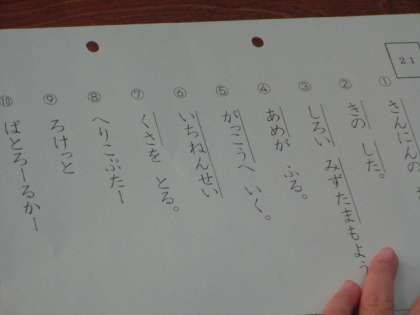 21
① さんにんの
② きの した。
③ しろい みずたまもよう
④ あめが ふる。
⑤ がっこうへ いく。
⑥ いちねんせい
⑦ くさを とる。
⑧ へりこぷたー
⑨ ろけっと
⑩ ぱとろーるかー